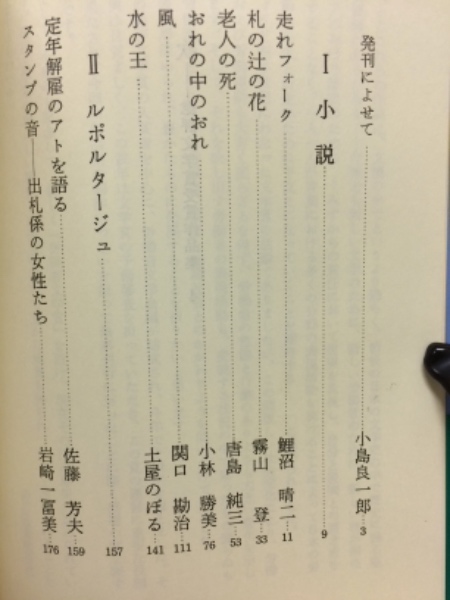 発刊によせて 小島良一郎 3
Ⅰ 小説 9
走れフォーク 鯉沼 晴二 11
札の辻の花 霧山 登 33
老人の死 唐島 純三 53
おれの中のおれ 小林 勝美 76
風 関口 勘治 111
水の王 土屋のぼる 141
Ⅱ ルポルタージュ 157
定年解雇のアトを語る 佐藤 芳夫 159
スタンプの音――出札係の女性たち 岩崎一冨美 176